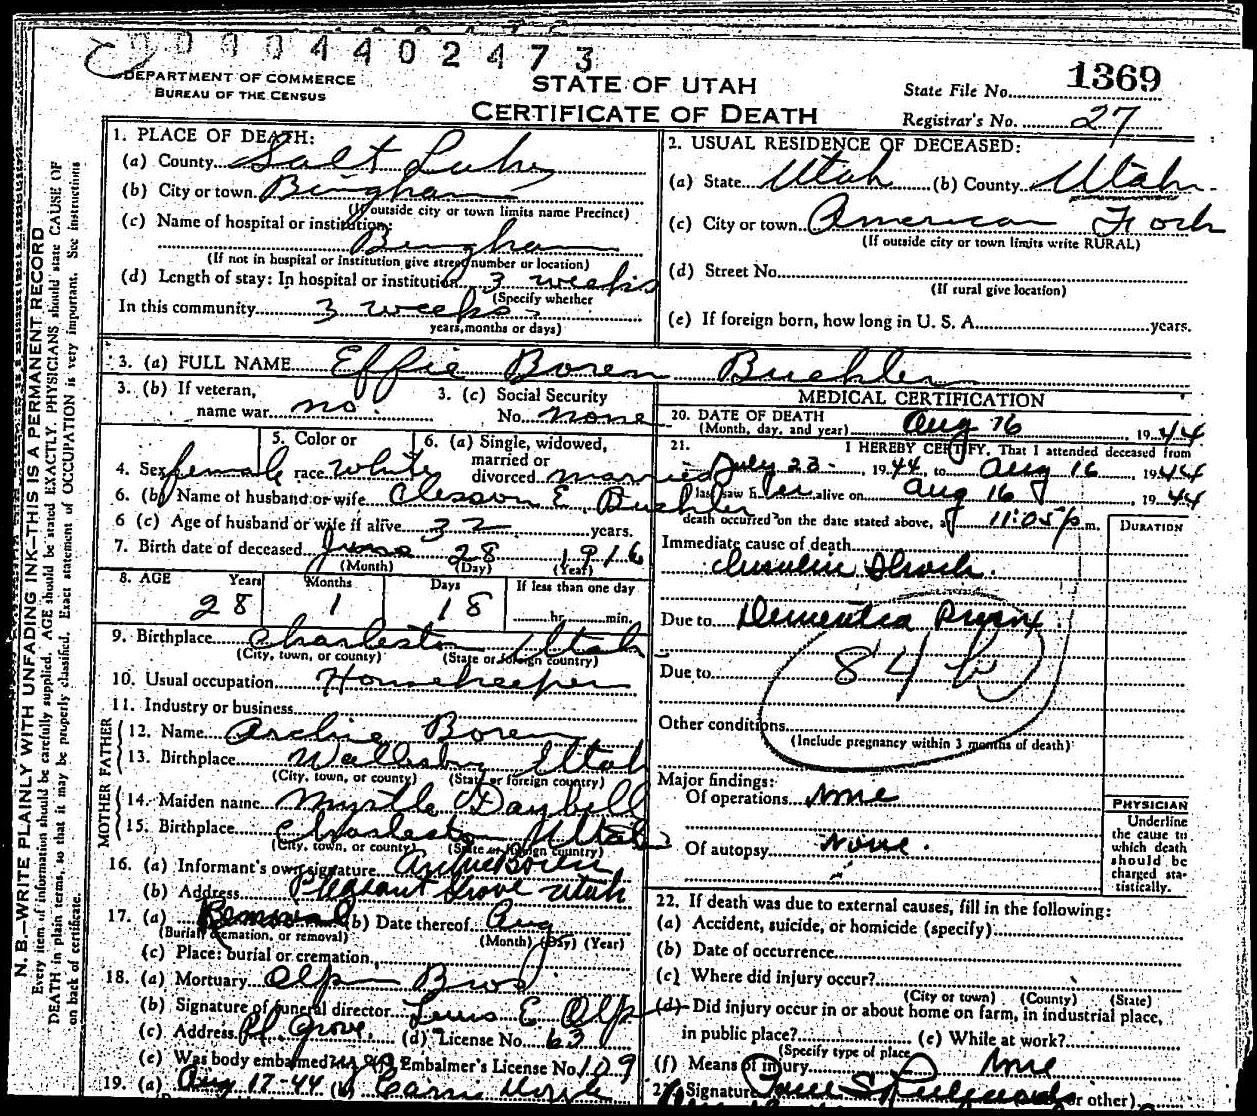 0004402473
DEPARTMENT OF COMMERCE
BUREAU OF THE CENSUS
STATE OF UTAH
CERTIFICATE OF DEATH
State File No. 1369
Registrar's No. 27
N. B.—WRITE PLAINLY WITH UNFADING INK—THIS IS A PERMANENT RECORD
Every item of information should be carefully supplied. AGE should be stated EXACTLY. PHYSICIANS should state CAUSE OF
DEATH in plain terms, so that it may be properly classified. Exact statement of OCCUPATION is very important. See instructions
on back of certificate.
1. PLACE OF DEATH:
(a) County Salt Lake
(b) City or town Bingham
(If outside city or town limits name Precinct)
(c) Name of hospital or institution:
Bingham
(If not in hospital or institution give street number or location)
(d) Length of stay: In hospital or institution 3 weeks
(Specify whether
In this community 3 weeks
years, months or days)
2. USUAL RESIDENCE OF DECEASED:
(a) State Utah (b) County Utah
(c) City or town American Fork
(If outside city or town limits write RURAL)
(d) Street No.
(If rural give location)
(e) If foreign born, how long in U. S. A. years.
3. (a) FULL NAME Effie Boren Buehler
3. (b) If veteran, name war no.
3. (c) Social Security No. none
4. Sex female
5. Color or race white
6. (a) Single, widowed, married or divorced married
6. (b) Name of husband or wife Clesson E. Buehler
6 (c) Age of husband or wife if alive 32 years.
7. Birth date of deceased June 28 1916
(Month) (Day) (Year)
8. AGE Years Months Days If less than one day
28 1 18 hr. min.
9. Birthplace Charleston Utah
(City, town, or county) (State or foreign country)
10. Usual occupation Housekeeper
11. Industry or business
FATHER
12. Name Archie Boren
13. Birthplace Wallsburg Utah
(City, town, or county) (State or foreign country)
MOTHER
14. Maiden name Myrtle Daybell
15. Birthplace Charleston Utah
(City, town, or county) (State or foreign country)
16. (a) Informant's own signature Archie Boren
(b) Address Pleasant Grove Utah
17. (a) Removal (b) Date thereof Aug
(Burial, cremation, or removal) (Month) (Day) (Year)
(c) Place: burial or cremation
18. (a) Mortuary Olpin Bros
(b) Signature of funeral director E Olpin
(c) Address Pl Grove (d) License No. 63
(e) Was body embalmed yes Embalmer's License No. 109
19. (a) Aug 17-44 (b)
MEDICAL CERTIFICATION
20. DATE OF DEATH
(Month, day, and year) Aug 16, 1944
21. I HEREBY CERTIFY, That I attended deceased from
July 23, 1944, to Aug 16 1944
last saw her alive on Aug 16 1944
death occurred on the date stated above, at 11:05 p.m.
DURATION
Immediate cause of death
Insulin Shock.
Due to Dementia Praox
Due to 84
Other conditions
(Include pregnancy within 3 months of death)
Major findings:
Of operations None
Of autopsy None.
PHYSICIAN
Underline
the cause to
which death
should be
charged sta-
tistically.
22. If death was due to external causes, fill in the following:
(a) Accident, suicide, or homicide (specify)
(b) Date of occurrence
(c) Where did injury occur?
(City or town) (County) (State)
(d) Did injury occur in or about home on farm, in industrial place,
in public place? (e) While at work?
(Specify type of place
(f) Means of injury None
Signature or other)